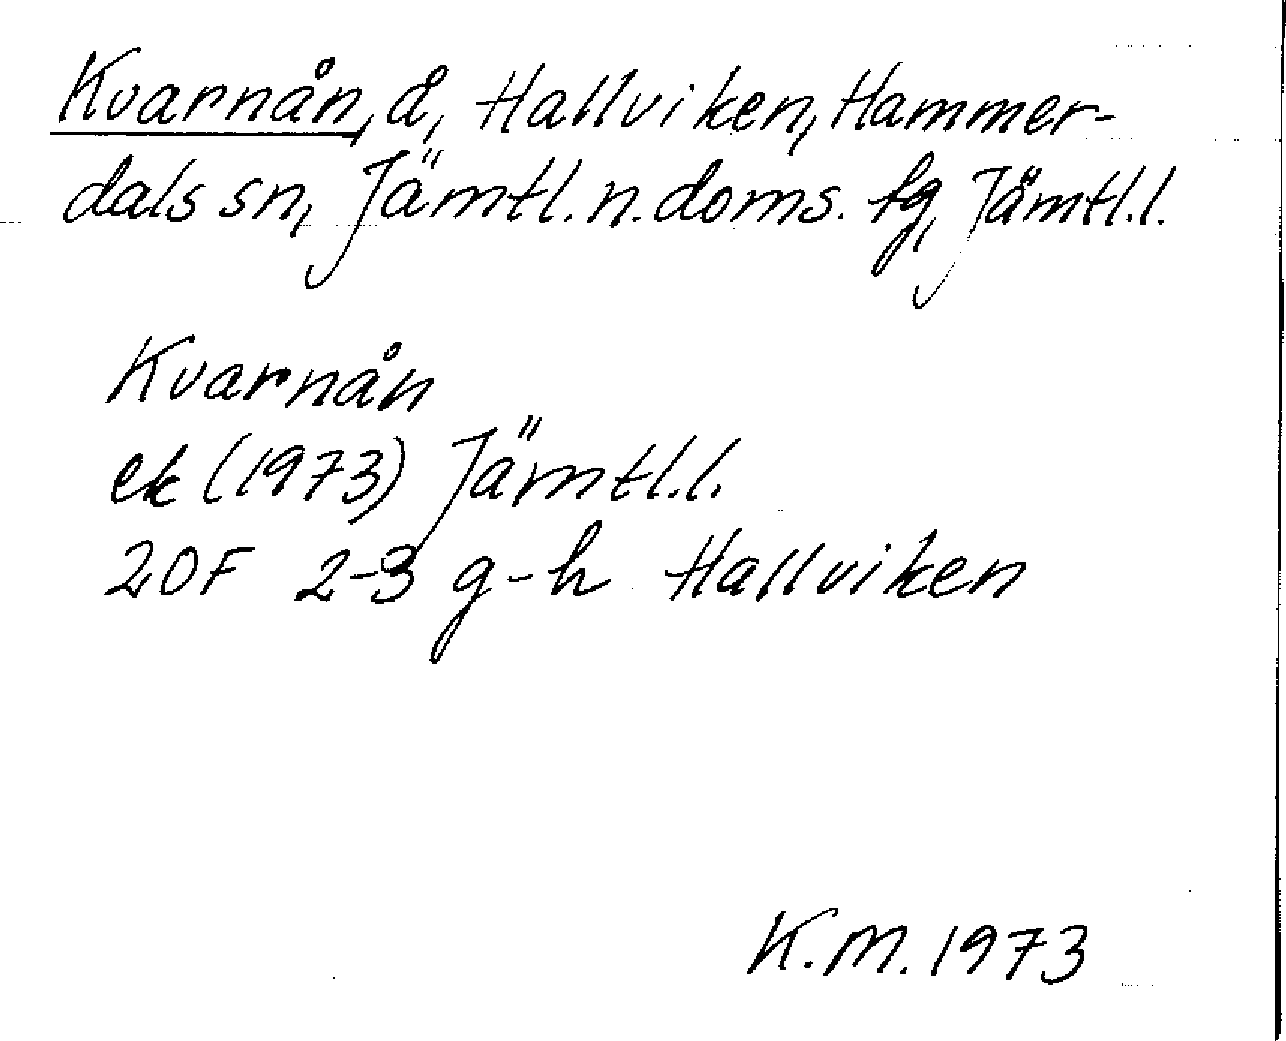 Kvarnån, å, Hallviken, Hammer-
dals sn, Jämtl. n. doms. tg, Jämtl.l.
Kvarnån
ek (1973) Jämtl.l.
20F 2-3 g-h Hallviken
K.M. 1973